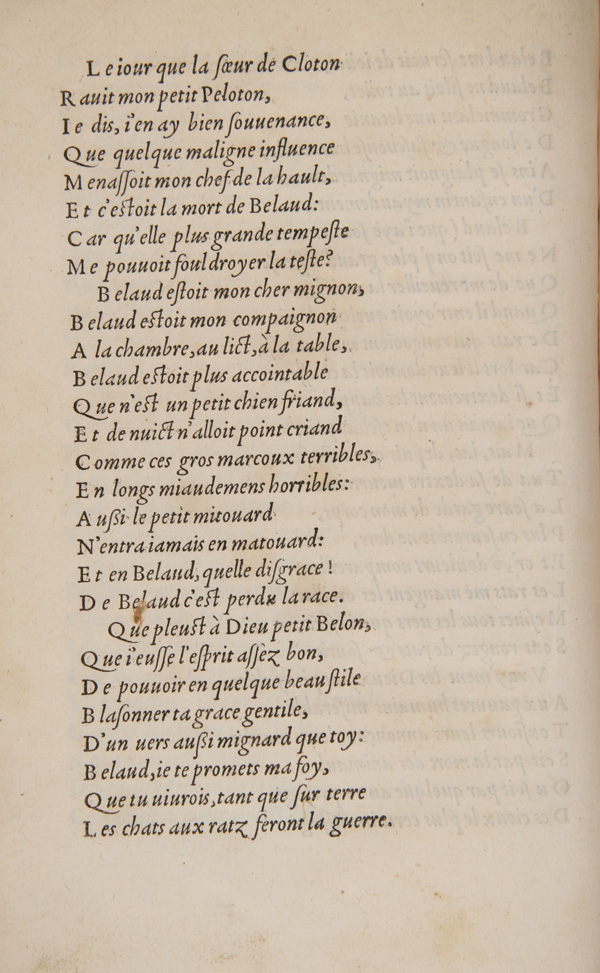 Le iour que la sœur de Cloton
Rauit mon petit Peloton,
Ie dis, i'en ay bien ſouuenance,
Que quelque maligne influence
Menaſſoit mon chef de la hault,
Et c'eſtoit la mort de Belaud:
Car qu'elle plus grande tempeſte
Me pouuoit fouldroyer la teſte?
Belaud eſtoit mon cher mignon,
Belaud eſtoit mon compaignon
A la chambre, au lict, à la table,
Belaud eſtoit plus accointable
Que n'eſt un petit chien friand,
Et de nuict n'alloit point criand
Comme ces gros marcoux terribles,
En longs miaudemens horribles:
Außi le petit mitouard
N'entra iamais en matouard:
Et en Belaud, quelle diſgrace!
De Belaud c'eſt perdu la race.
Que pleuſt à Dieu petit Belon,
Que i'euſſe l'eſprit aſſez bon,
De pouuoir en quelque beau ſtile
Blaſonner ta grace gentile,
D'un uers außi mignard que toy:
Belaud, ie te promets ma foy,
Que tu uiurois, tant que ſur terre
Les chats aux ratz feront la guerre.